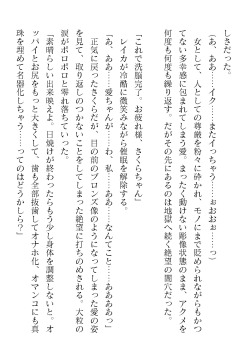 しさだった。
（あ、ああ……イク……またイっちゃう……おぉぉぉ……っ）
　女として、人としての尊厳を粉々に砕かれ、モノにまで貶められながらもかつ
てない多幸感に包まれてしまう愛。まったく動けない彫像状態のまま、アクメを
何度も何度も繰り返す。だがその先にあるのは地獄へ続く絶望の闇穴だった。

「これで洗脳完了。お疲れ様、さくらちゃん」
　レイカが冷酷に微笑みながら催眠を解除する。
「あ、ああ……愛ちゃんが……わ、私、ああ……なんてこと……ああああっ」
　正気に戻ったさくらだが、目の前のブロンズ像のようになってしまった愛の姿
を見て、取り返しのつかないことをしてしまった絶望に打ちのめされる。大粒の
涙がポロポロと零れ落ちていった。
「素晴らしい出来映えよ。日焼けが終わったらもう少し身体を調整しないと。オ
ッパイとお尻をもっと大きくして、歯も全部抜歯してオナホ化、オマンコにも真
珠を埋めて名器化しちゃう……ってのはどうかしら？」